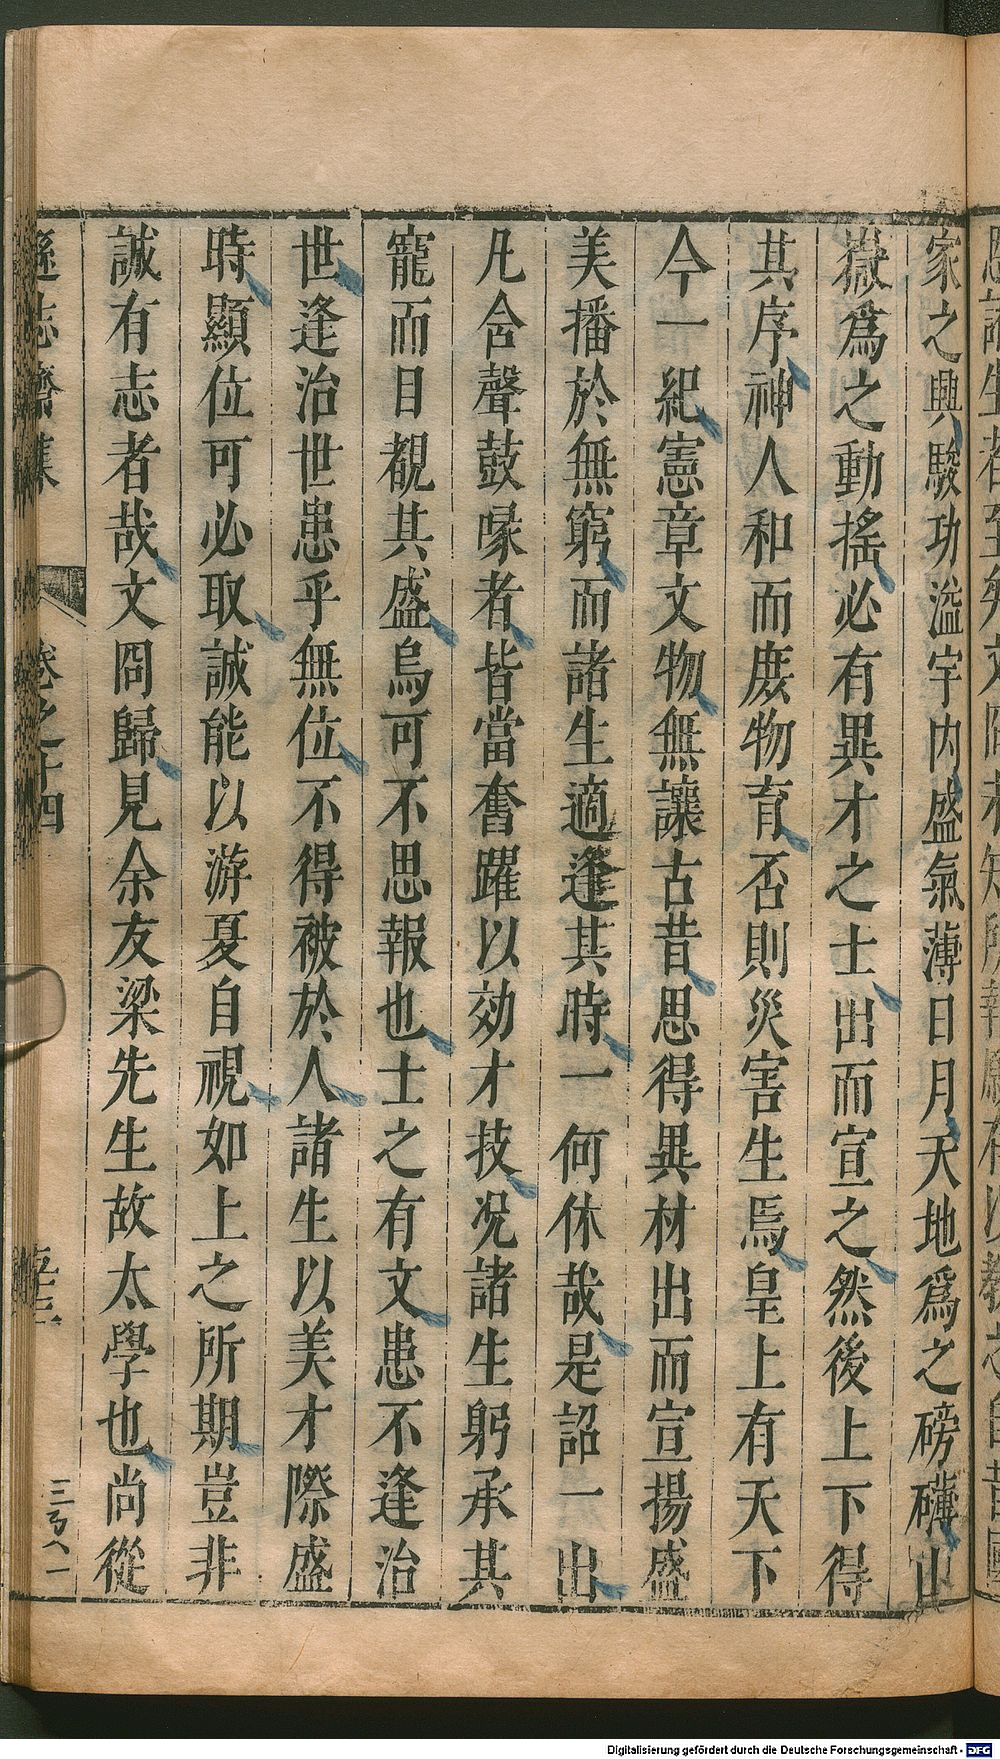 家之興駿功溢宇内盛氣薄日月天地爲之磅礴山
嶽爲之動搖必有異才之士出而宣之然後上下得
其序神人和而庶物育否則災害生焉皇上有天下
今一紀憲章文物無讓古昔思得異材出而宣揚盛
美播於無窮而諸生適逢其時一何休哉是詔一出
凡含聲鼓喙者皆當奮躍以効才技况諸生躬承其
寵而目覩其盛烏可不思報也士之有文患不逢治
世逢治世患乎無位不得被於人諸生以美才際盛
時顯位可必取誠能以游夏自視如上之所期豈非
誠有志者哉文冏歸見余友梁先生故太學也尚從
遜志齋集
卷之十四
三百八一
Digitalisierung gefördert durch die Deutsche Forschungsgemeinschaft - DFG